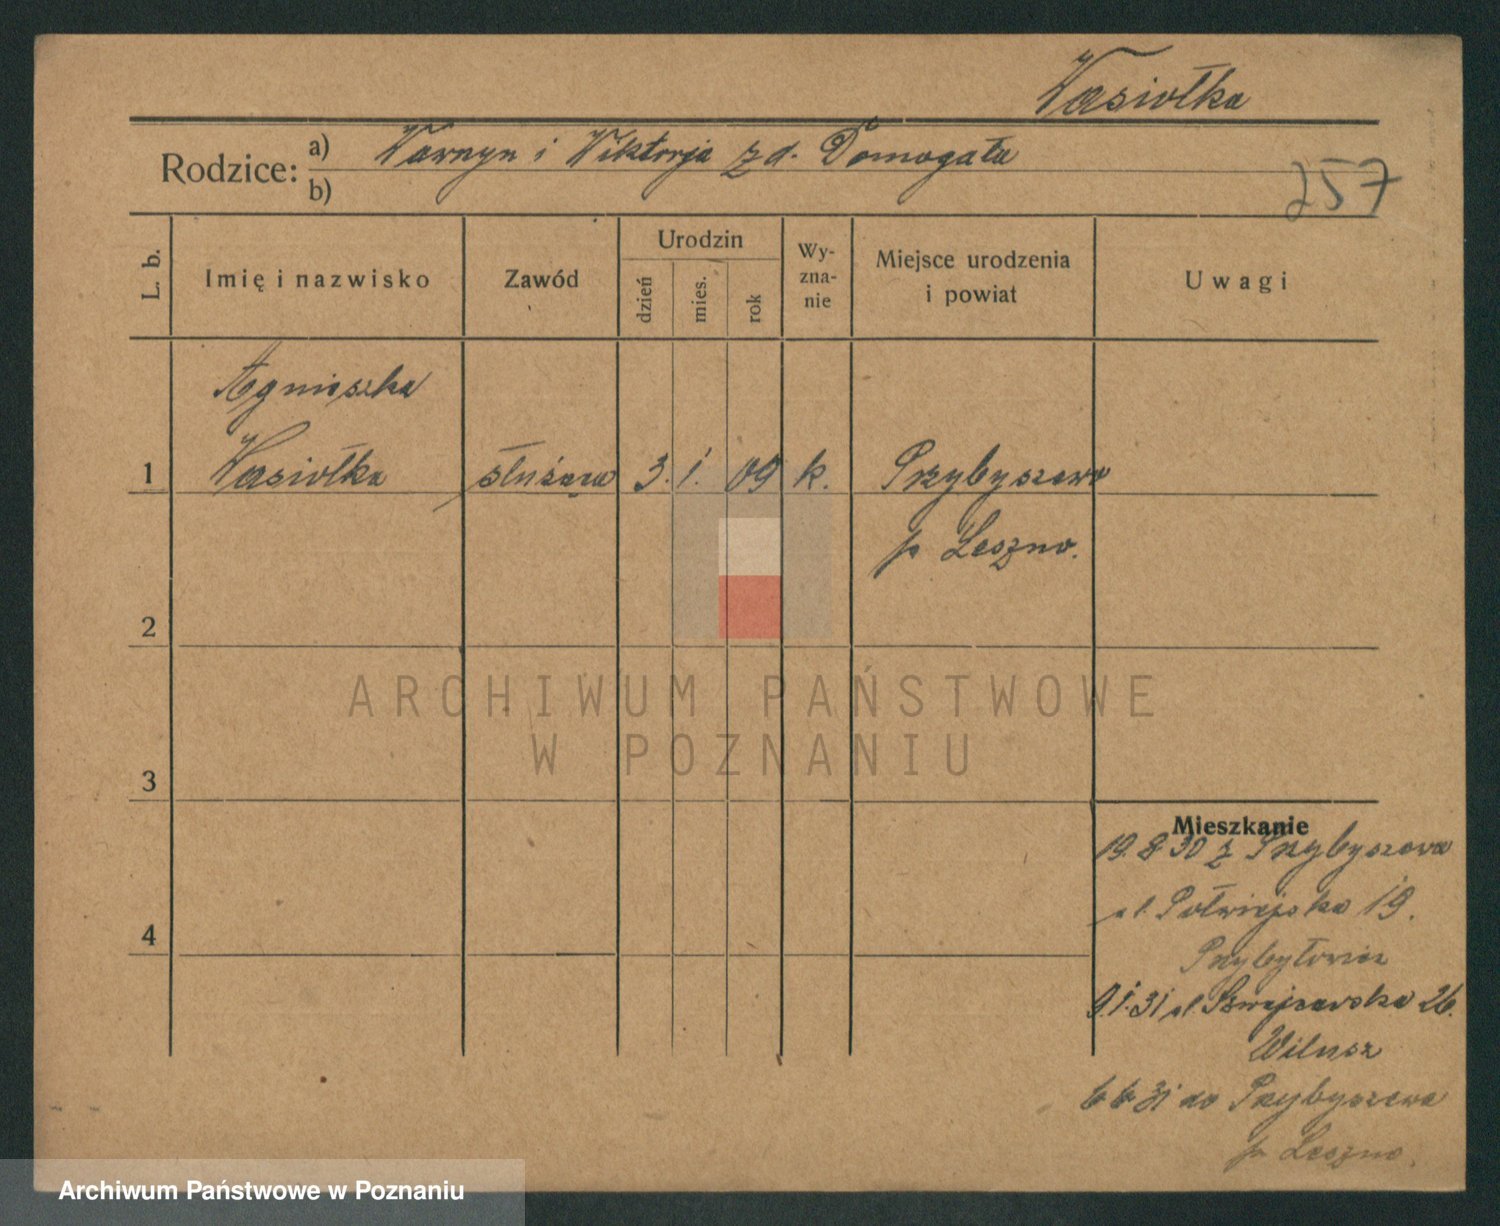 Wasiołka
Rodzice: a) Wawrzyn i Wiktorja z d. Domagała
b)
257
L. b.
Imię i nazwisko
Zawód
Urodzin
dzień
mies.
rok
Wy-
zna-
nie
Miejsce urodzenia
i powiat
Uwagi
Agnieszka
1 Wasiołka służąca 3. 1. 09 k. Przybyszewo
p Leszno.
2
3
4
ARCHIWUM PAŃSTWOWE
W POZNANIU
Mieszkanie
19. 8 30 z Przybyszewa
ul. Półwiejska 19.
Przybyłowicz
9. 1. 31 ul. Szwajcarska 26.
Wilusz
6 6 31 do Przybyszewa
p Leszno.
Archiwum Państwowe w Poznaniu